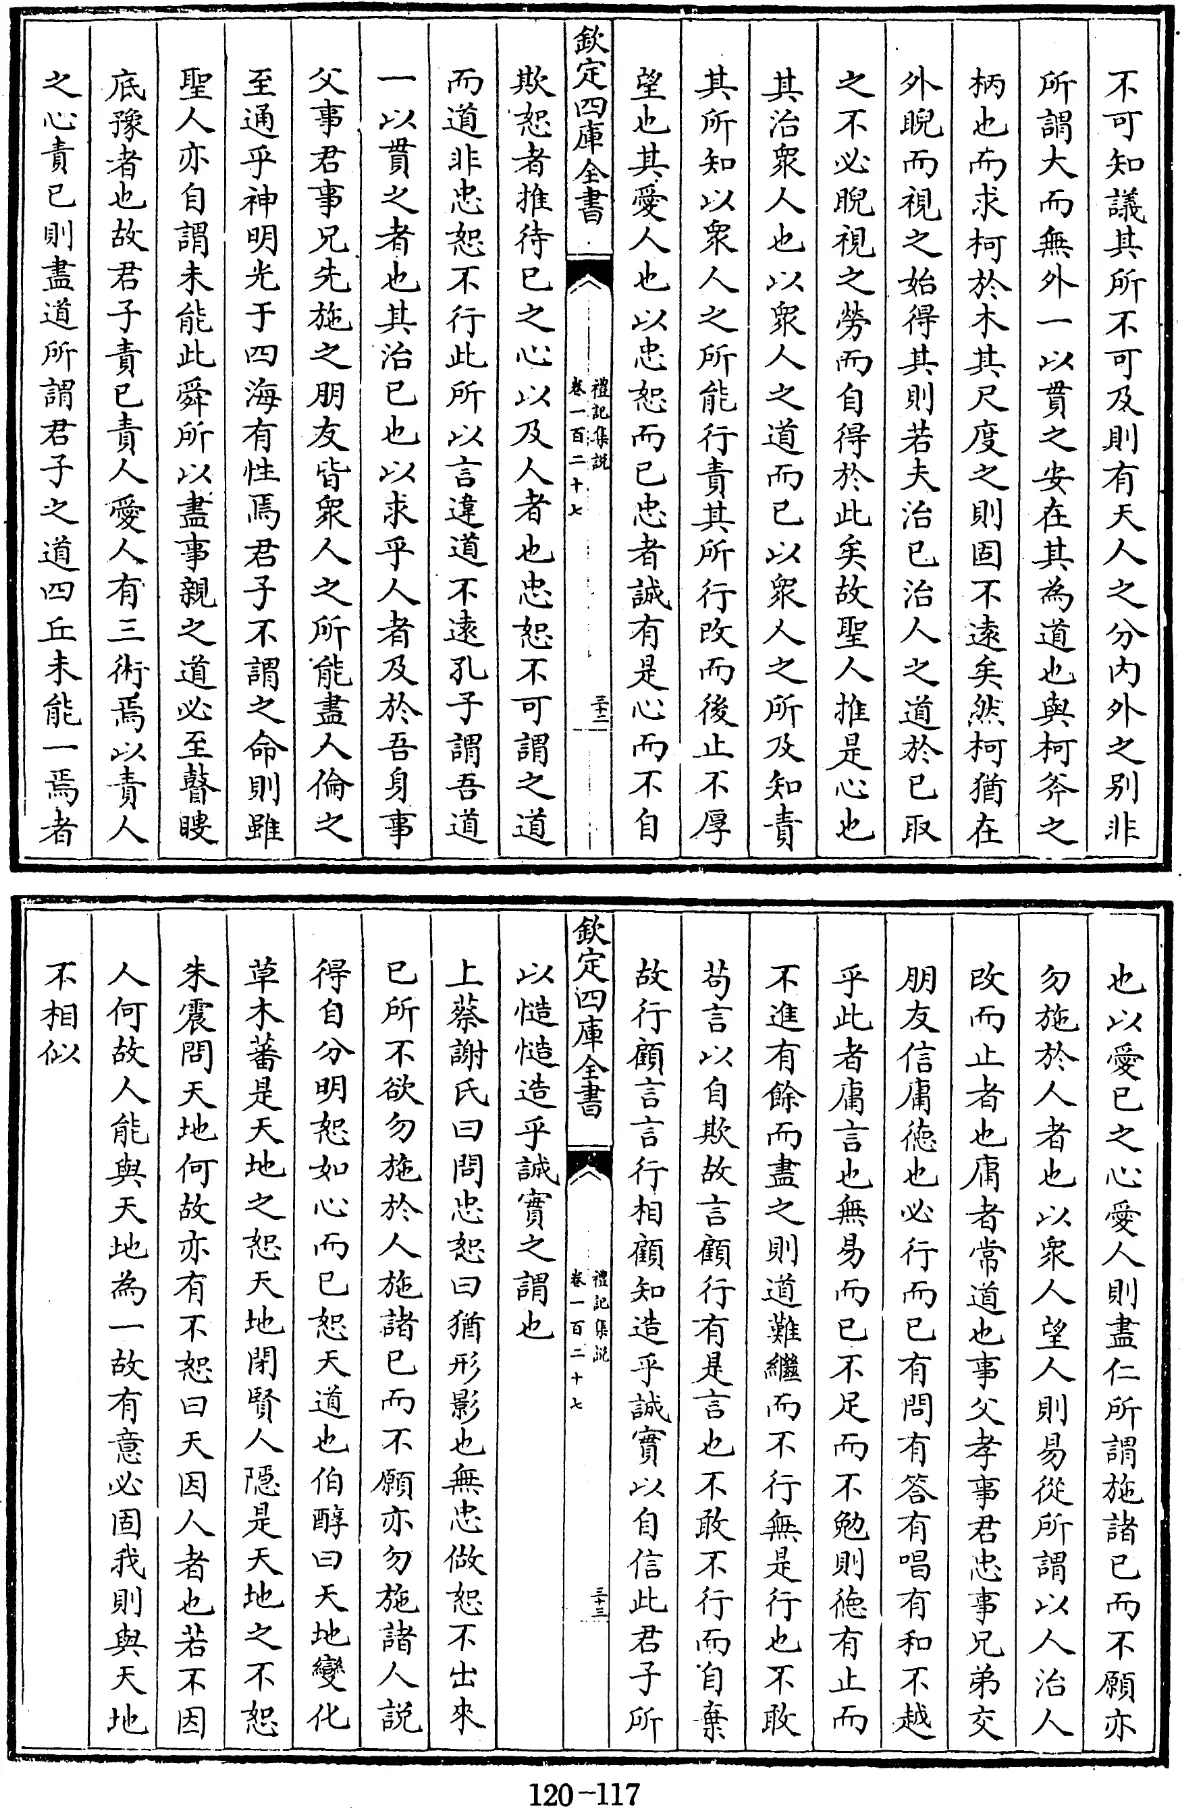 不可知議其所不可及則有天人之分内外之别非
所謂大而無外一以貫之安在其為道也與柯斧之
柄也而求柯於木其尺度之則固不逺矣然柯猶在
外睨而視之始得其則若夫治已治人之道於已取
之不必睨視之勞而自得於此矣故聖人推是心也
其治衆人也以衆人之道而已以衆人之所及知責
其所知以衆人之所能行責其所行改而後止不厚
望也其愛人也以忠恕而已忠者誠有是心而不自
欽定四庫全書
禮記集説
卷一百二十七
三十二
欺恕者推待已之心以及人者也忠恕不可謂之道
而道非忠恕不行此所以言違道不逺孔子謂吾道
一以貫之者也其治已也以求乎人者及於吾身事
父事君事兄先施之朋友皆衆人之所能盡人倫之
至通乎神明光于四海有性焉君子不謂之命則雖
聖人亦自謂未能此舜所以盡事親之道必至瞽瞍
底豫者也故君子責已責人愛人有三術焉以責人
之心責已則盡道所謂君子之道四丘未能一焉者
也以愛已之心愛人則盡仁所謂施諸已而不願亦
勿施於人者也以衆人望人則易從所謂以人治人
改而止者也庸者常道也事父孝事君忠事兄弟交
朋友信庸徳也必行而已有問有答有唱有和不越
乎此者庸言也無易而已不足而不勉則徳有止而
不進有餘而盡之則道難繼而不行無是行也不敢
苟言以自欺故言顧行有是言也不敢不行而自棄
故行顧言言行相顧知造乎誠實以自信此君子所
欽定四庫全書
禮記集説
卷一百二十七
三十三
以慥慥造乎誠實之謂也
上蔡謝氏曰問忠恕曰猶形影也無忠做恕不出來
已所不欲勿施於人施諸已而不願亦勿施諸人説
得自分明恕如心而已恕天道也伯醇曰天地變化
草木蕃是天地之恕天地閉賢人隱是天地之不恕
朱震問天地何故亦有不恕曰天因人者也若不因
人何故人能與天地為一故有意必固我則與天地
不相似
120-117